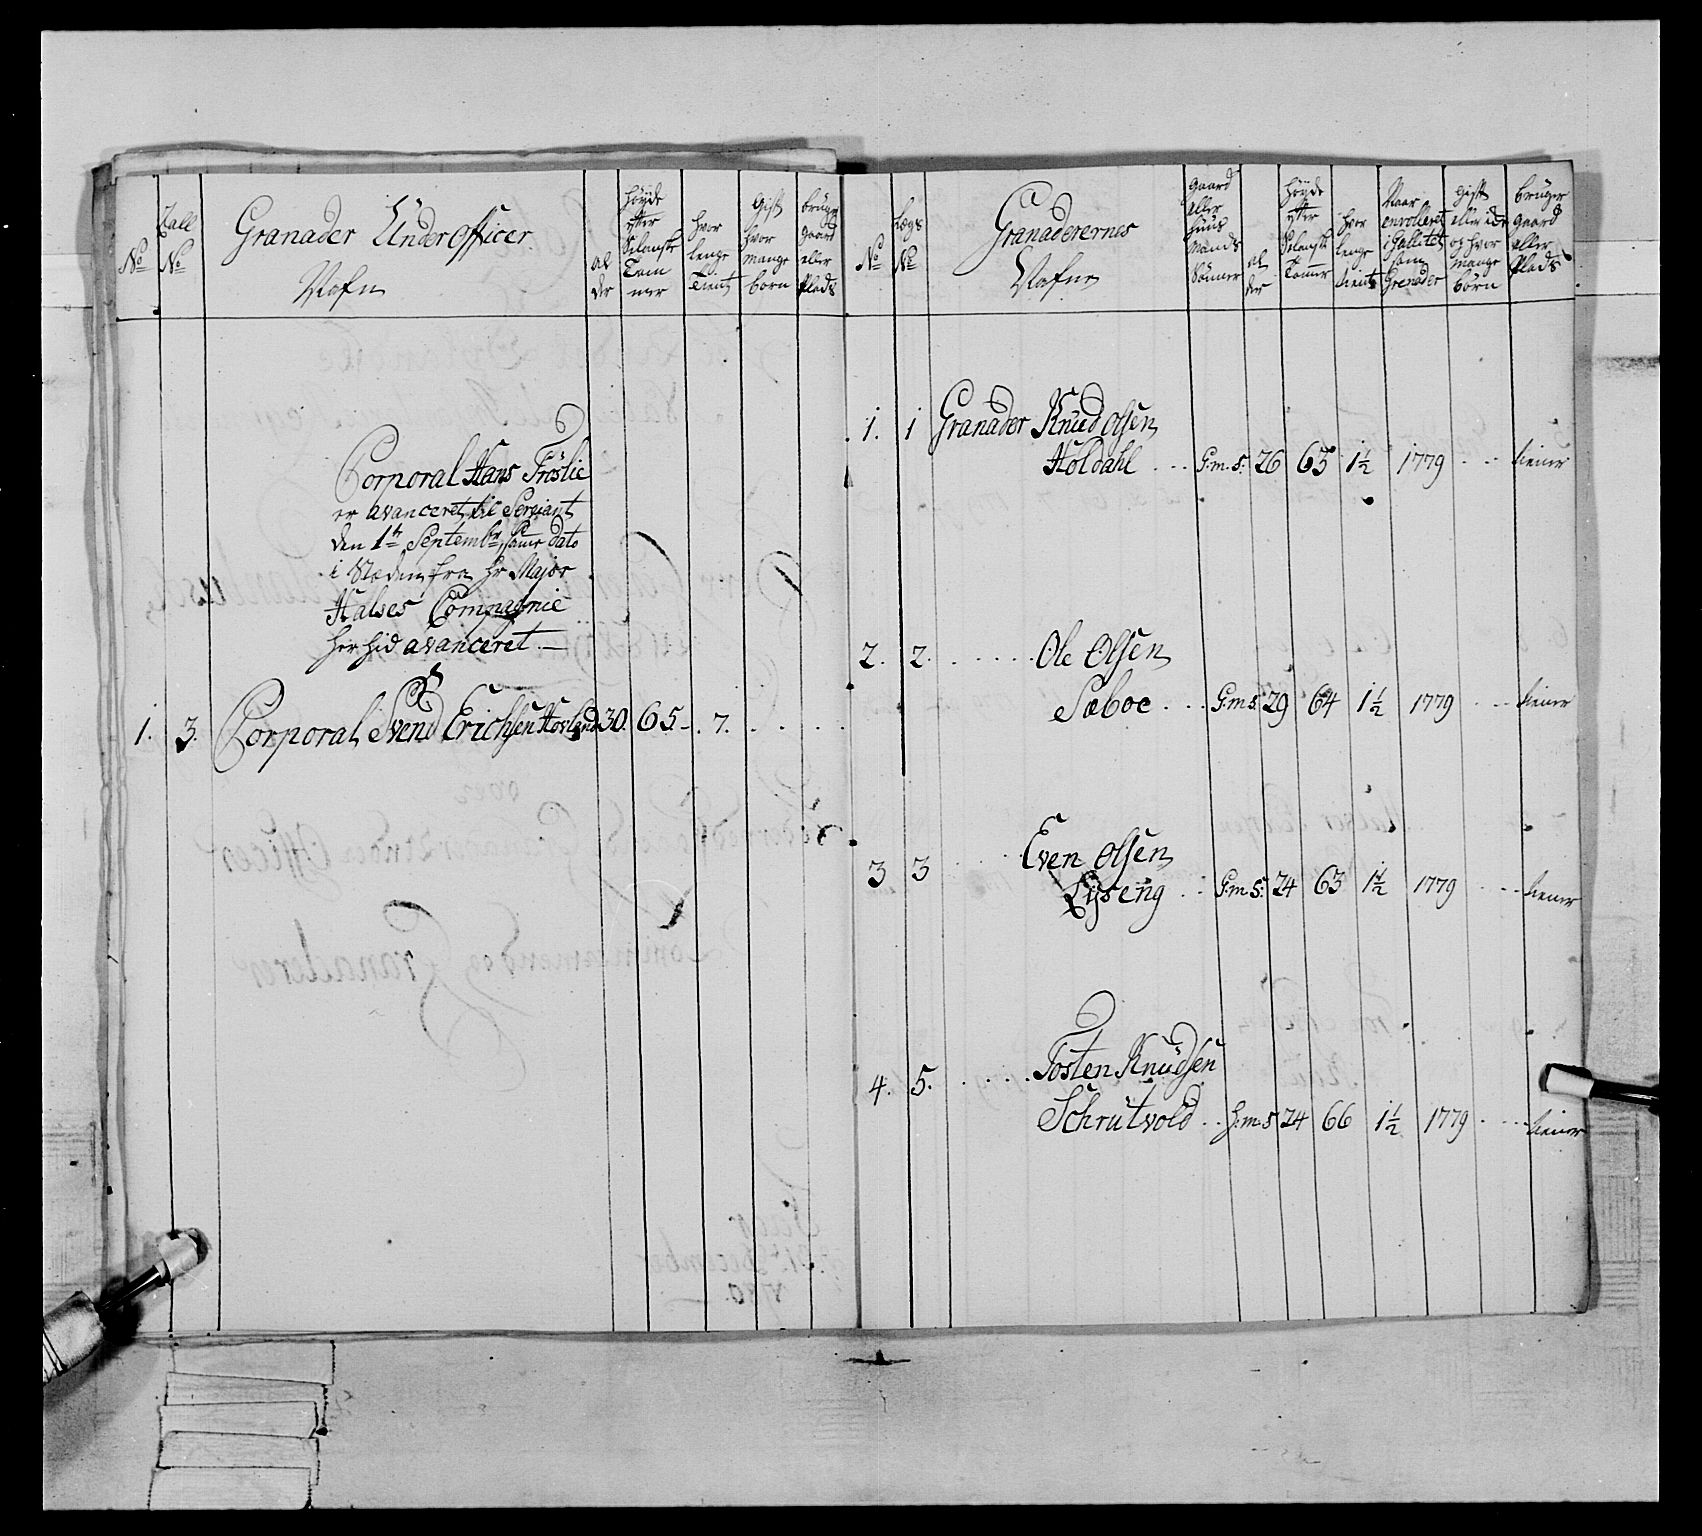 No
Tall
No
Granader Under Officer
Nafn
Al
der
Høyde
efter
Selansk
Tom
mer
hvor
lenge
Tient
Gift
hvor
mange
born
bruger
gaard
eller
Plads
Corporal Hans Fröslie
er avanceret til Sergiant
den 1te Septembr, samme dato
i Steden fra Hr Major
Halses Compagnie
her hid avanceret
1. 3. Corporal Svend Erichsen Hovland 30. 65 - . 7. . . . .
No
Lægs
No
Granaderernes
Nafn
Gaard
eller
Huus
Mands
Sönner
al
der
Høyde
efter
Selansk
Tommer
hvor
lenge
tient
Naar
enrolleret
som
Grenader
Gift
eller ide
og hvor
mange
börn
bruger
gaard
eller
Plads
1. 1 Granader Knud Olsen
Holdahl . . . G.m.S. 26 63 1½ 1779 . . . tiener
2. 2. . . . . . Ole Olsen
Sæboe . . . G.m.S. 29 64 1½ 1779 . . . tiener
3 3 . . . . Even Olsen
Lyseng . . G.m.S. 24 63 1½ 1779 . . . tiener
4. 5. . . . . . Tosten Knudsen
Schrutvold . . H.m.S 24 66 1½ 1779 . . . tiener